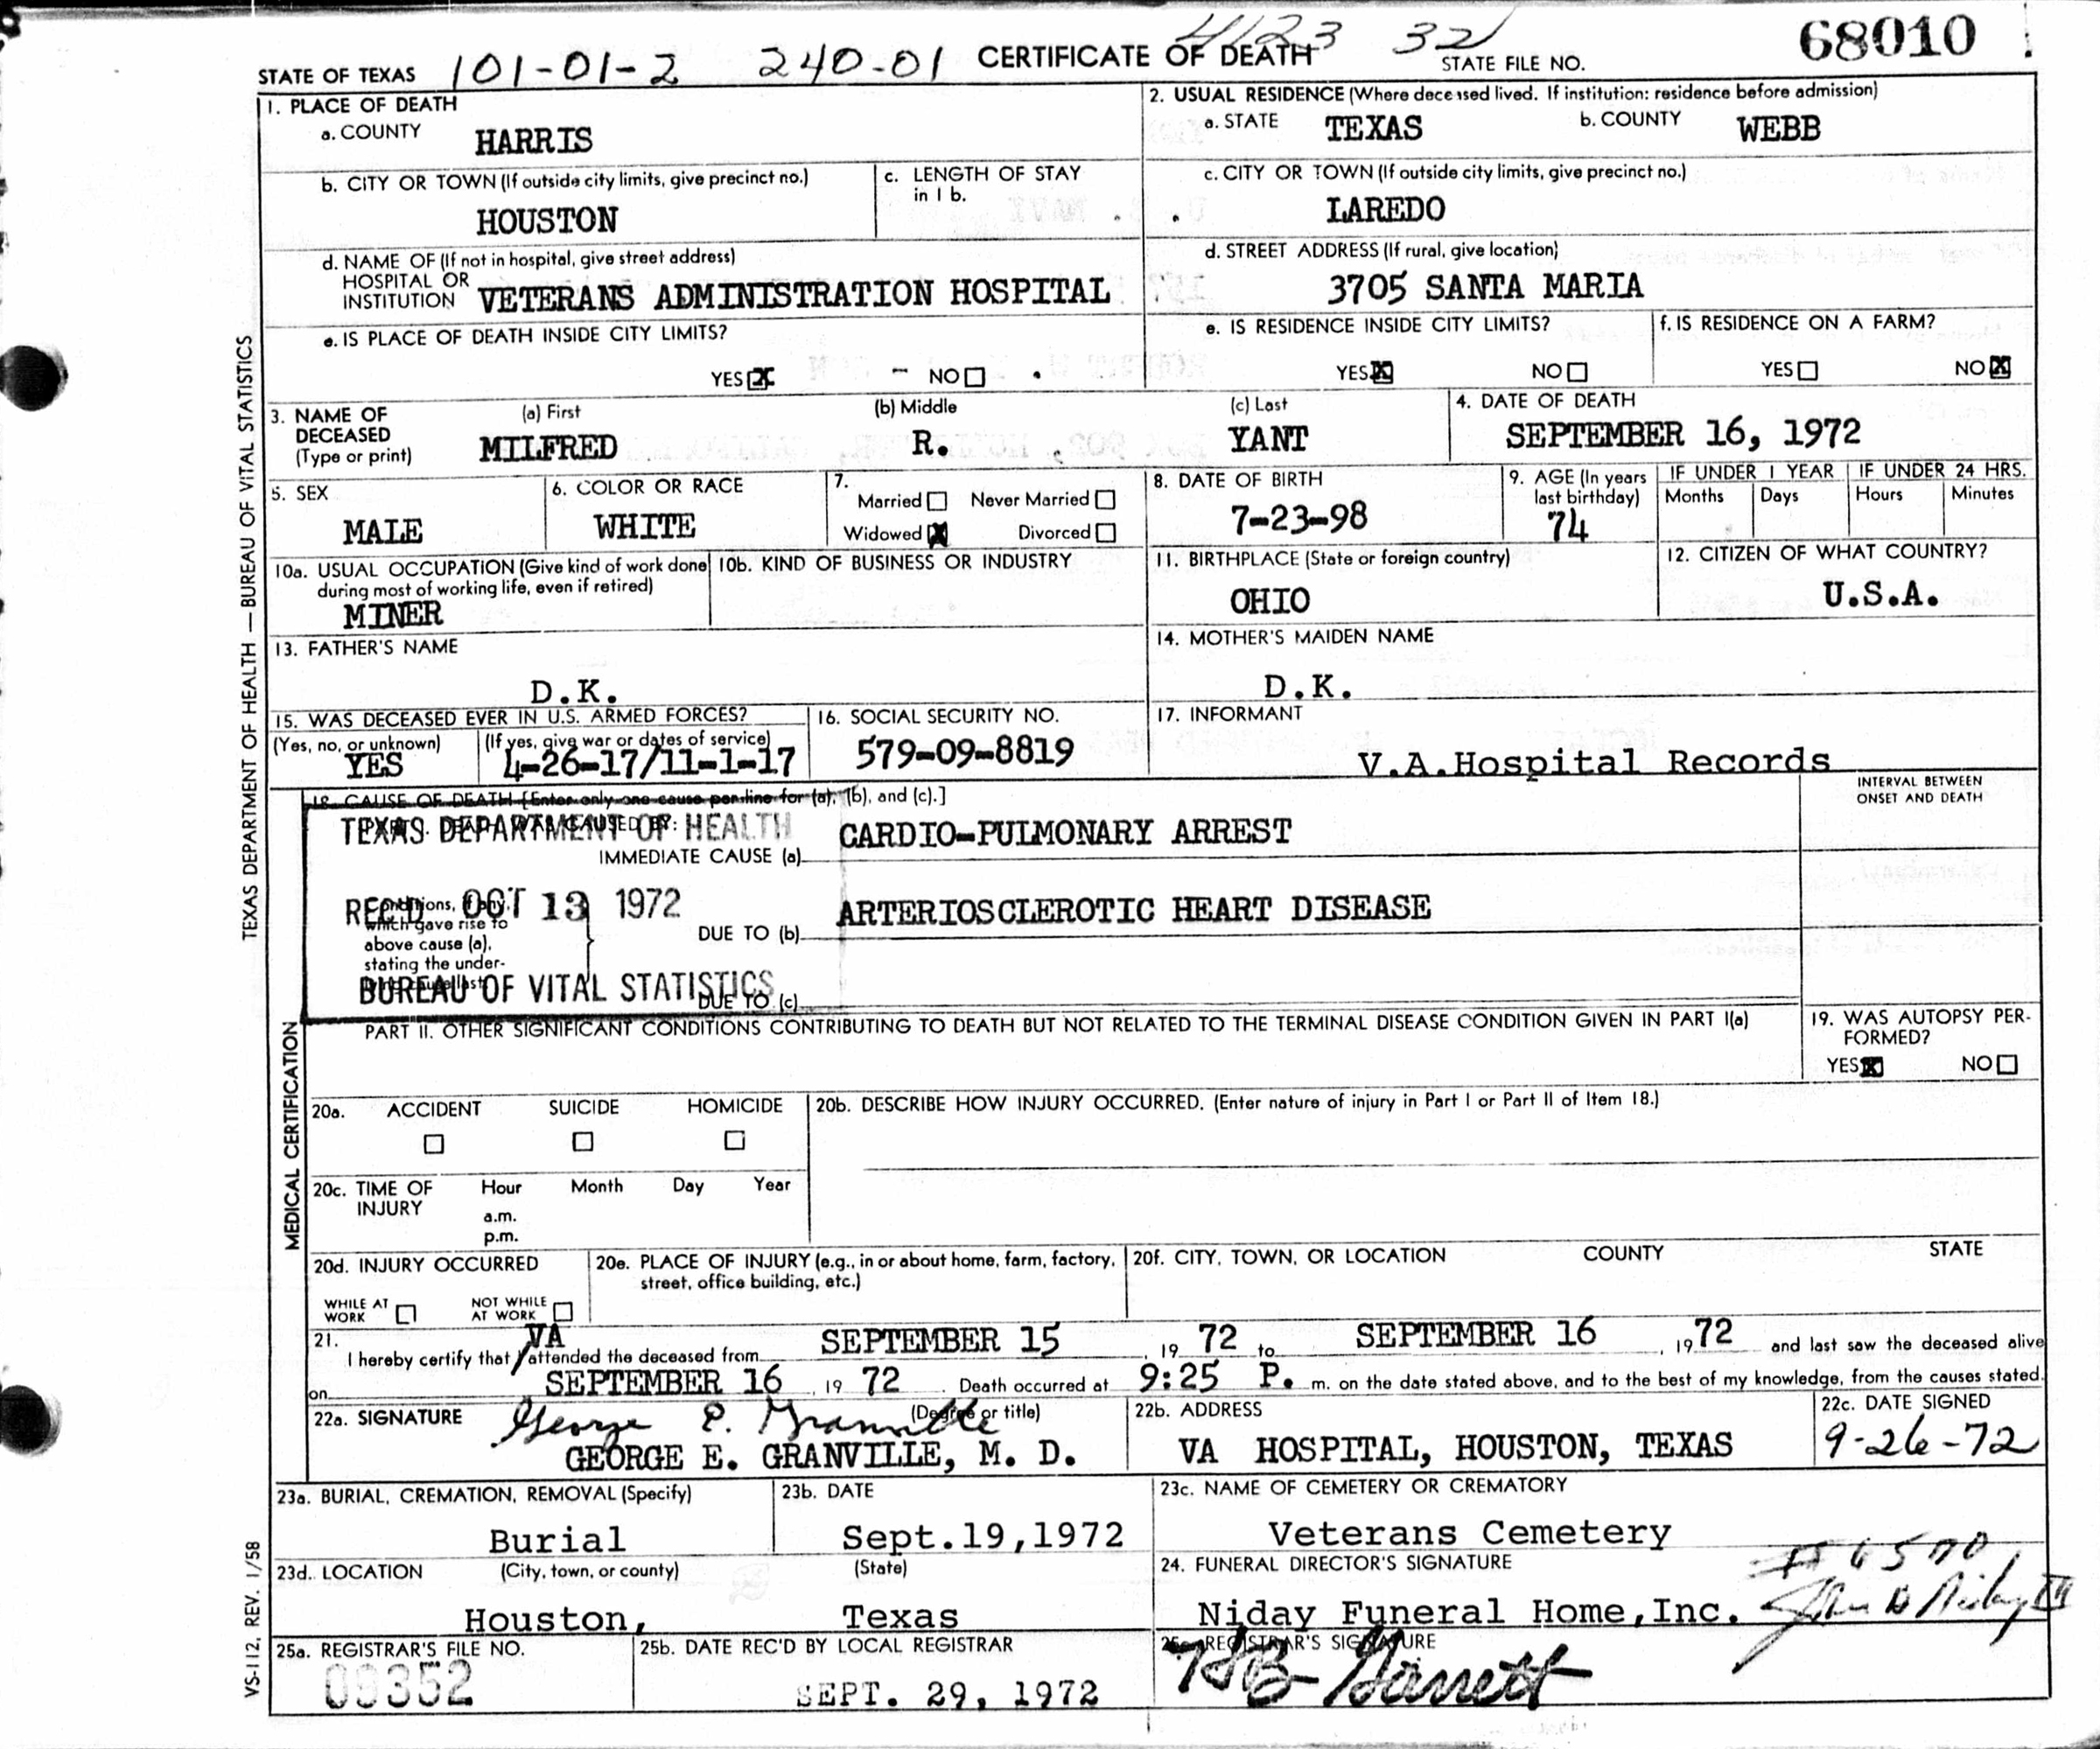 4123 32
68010
STATE OF TEXAS 101-01-2 240-01 CERTIFICATE OF DEATH STATE FILE NO.
1. PLACE OF DEATH
a. COUNTY HARRIS
2. USUAL RESIDENCE (Where deceased lived. If institution: residence before admission)
a. STATE TEXAS b. COUNTY WEBB
b. CITY OR TOWN (If outside city limits, give precinct no.)
HOUSTON
c. LENGTH OF STAY
in 1 b.
c. CITY OR TOWN (If outside city limits, give precinct no.)
LAREDO
d. NAME OF (If not in hospital, give street address)
HOSPITAL OR
INSTITUTION VETERANS ADMINISTRATION HOSPITAL
d. STREET ADDRESS (If rural, give location)
3705 SANTA MARIA
e. IS PLACE OF DEATH INSIDE CITY LIMITS?
YES X NO
e. IS RESIDENCE INSIDE CITY LIMITS?
YES X NO
f. IS RESIDENCE ON A FARM?
YES NO X
3. NAME OF
DECEASED
(Type or print)
(a) First (b) Middle (c) Last
MILFRED R. YANT
4. DATE OF DEATH
SEPTEMBER 16, 1972
5. SEX
MALE
6. COLOR OR RACE
WHITE
7.
Married Never Married
Widowed X Divorced
8. DATE OF BIRTH
7-23-98
9. AGE (In years
last birthday)
74
IF UNDER 1 YEAR IF UNDER 24 HRS.
Months Days Hours Minutes
10a. USUAL OCCUPATION (Give kind of work done
during most of working life, even if retired)
MINER
10b. KIND OF BUSINESS OR INDUSTRY
11. BIRTHPLACE (State or foreign country)
OHIO
12. CITIZEN OF WHAT COUNTRY?
U.S.A.
13. FATHER'S NAME
D.K.
14. MOTHER'S MAIDEN NAME
D.K.
15. WAS DECEASED EVER IN U.S. ARMED FORCES?
(Yes, no, or unknown) (If yes, give war or dates of service)
YES 4-26-17/11-1-17
16. SOCIAL SECURITY NO.
579-09-8819
17. INFORMANT
V.A.Hospital Records
18. CAUSE OF DEATH [Enter only one cause per line for (a), (b), and (c).]
INTERVAL BETWEEN
ONSET AND DEATH
TEXAS DEPARTMENT OF HEALTH
IMMEDIATE CAUSE (a) CARDIO-PULMONARY ARREST
REC'D OCT 13 1972
Conditions, if any,
which gave rise to
above cause (a),
stating the under-
DUE TO (b) ARTERIOSCLEROTIC HEART DISEASE
BUREAU OF VITAL STATISTICS
DUE TO (c)
PART II. OTHER SIGNIFICANT CONDITIONS CONTRIBUTING TO DEATH BUT NOT RELATED TO THE TERMINAL DISEASE CONDITION GIVEN IN PART I(a)
19. WAS AUTOPSY PER-
FORMED?
YES X NO
20a. ACCIDENT SUICIDE HOMICIDE
20b. DESCRIBE HOW INJURY OCCURRED. (Enter nature of injury in Part I or Part II of Item 18.)
20c. TIME OF
INJURY
Hour Month Day Year
a.m.
p.m.
20d. INJURY OCCURRED
WHILE AT
WORK
NOT WHILE
AT WORK
20e. PLACE OF INJURY (e.g., in or about home, farm, factory,
street, office building, etc.)
20f. CITY, TOWN, OR LOCATION COUNTY STATE
21. VA
I hereby certify that / attended the deceased from SEPTEMBER 15, 19 72 to SEPTEMBER 16, 19 72 and last saw the deceased alive
on SEPTEMBER 16, 19 72. Death occurred at 9:25 P. m. on the date stated above, and to the best of my knowledge, from the causes stated.
22a. SIGNATURE George E. Granville (Degree or title)
GEORGE E. GRANVILLE, M. D.
22b. ADDRESS
VA HOSPITAL, HOUSTON, TEXAS
22c. DATE SIGNED
9-26-72
23a. BURIAL, CREMATION, REMOVAL (Specify)
Burial
23b. DATE
Sept.19,1972
23c. NAME OF CEMETERY OR CREMATORY
Veterans Cemetery
23d. LOCATION (City, town, or county) (State)
Houston, Texas
24. FUNERAL DIRECTOR'S SIGNATURE
Niday Funeral Home,Inc.
25a. REGISTRAR'S FILE NO.
09352
25b. DATE REC'D BY LOCAL REGISTRAR
SEPT. 29, 1972
25c. REGISTRAR'S SIGNATURE
HB Garrett
TEXAS DEPARTMENT OF HEALTH — BUREAU OF VITAL STATISTICS
MEDICAL CERTIFICATION
VS-112, REV. 1/58